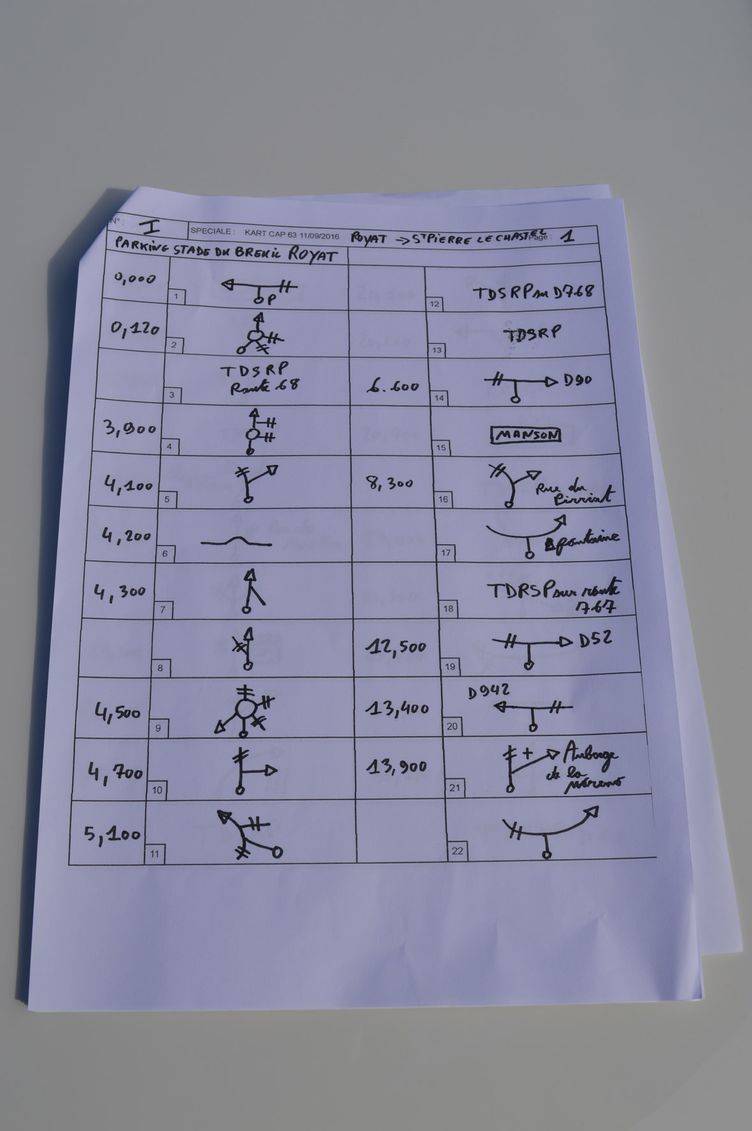 N° : I SPECIALE : KART CAP 63 11/09/2016 ROYAT → ST PIERRE LE CHASTEL Page : 1
PARKING STADE DU BREUIL ROYAT
0,000 1 P
0,120 2
3 TDSRP
Route 68
3,900 4
4,100 5
4,200 6
4,300 7
8
4,500 9
4,700 10
5,100 11
12 TDSRP sur D768
13 TDSRP
6.600 14 D90
15 MANSON
8,300 16 Rue du
17 fontaine
18 TDRSP sur route
767
12,500 19 D52
13,400 20 D942
13,900 21 + Auberge
de la
Moreno
22